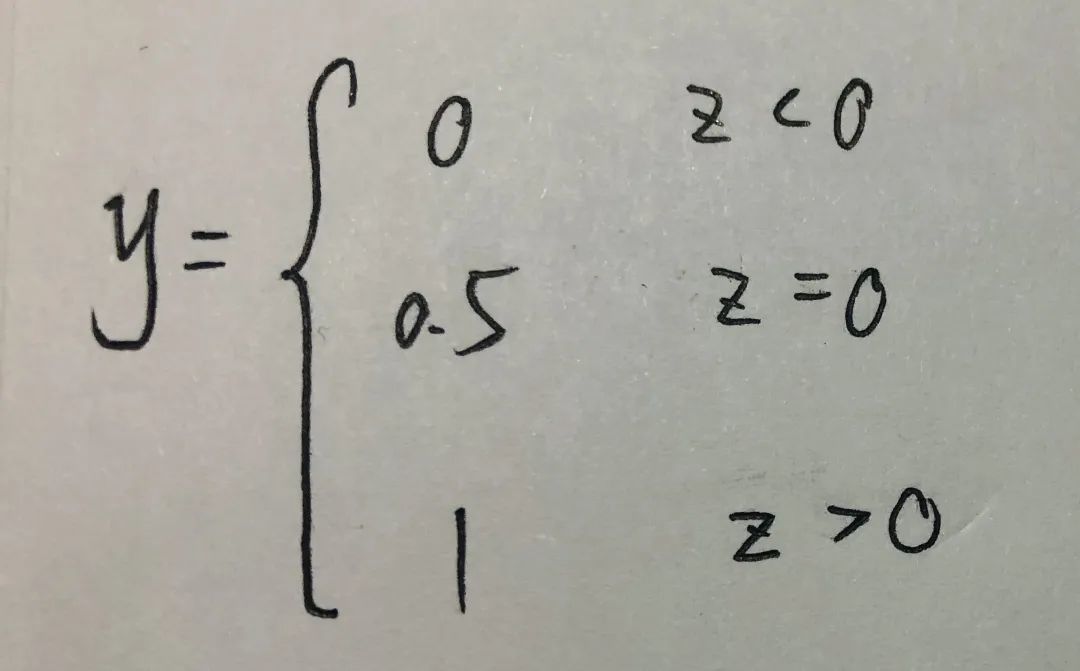 0 z < 0
y = { 0.5 z = 0
1 z > 0